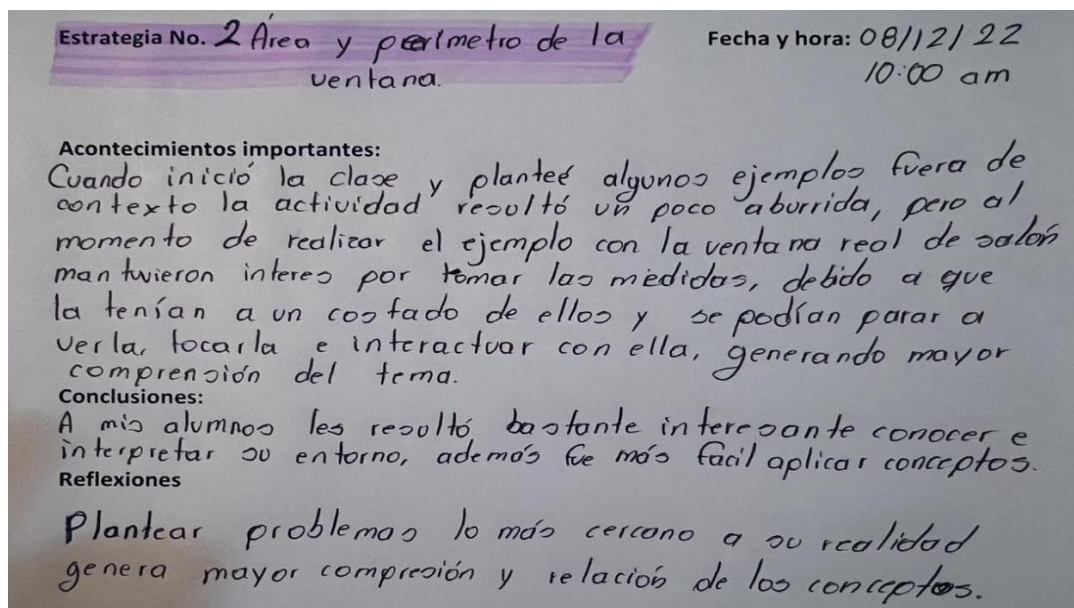 Estrategia No. 2 Área y perímetro de la Fecha y hora: 08/12/22
ventana. 10:00 am
Acontecimientos importantes:
Cuando inició la clase y planteé algunos ejemplos fuera de
contexto la actividad resultó un poco aburrida, pero al
momento de realizar el ejemplo con la ventana real de salón
mantuvieron interes por tomar las medidas, debido a que
la tenían a un costado de ellos y se podían parar a
verla, tocarla e interactuar con ella, generando mayor
comprensión del tema.
Conclusiones:
A mis alumnos les resultó bastante interesante conocer e
interpretar su entorno, además fue más fácil aplicar conceptos.
Reflexiones
Plantear problemas lo más cercano a su realidad
genera mayor compresión y relación de los conceptos.